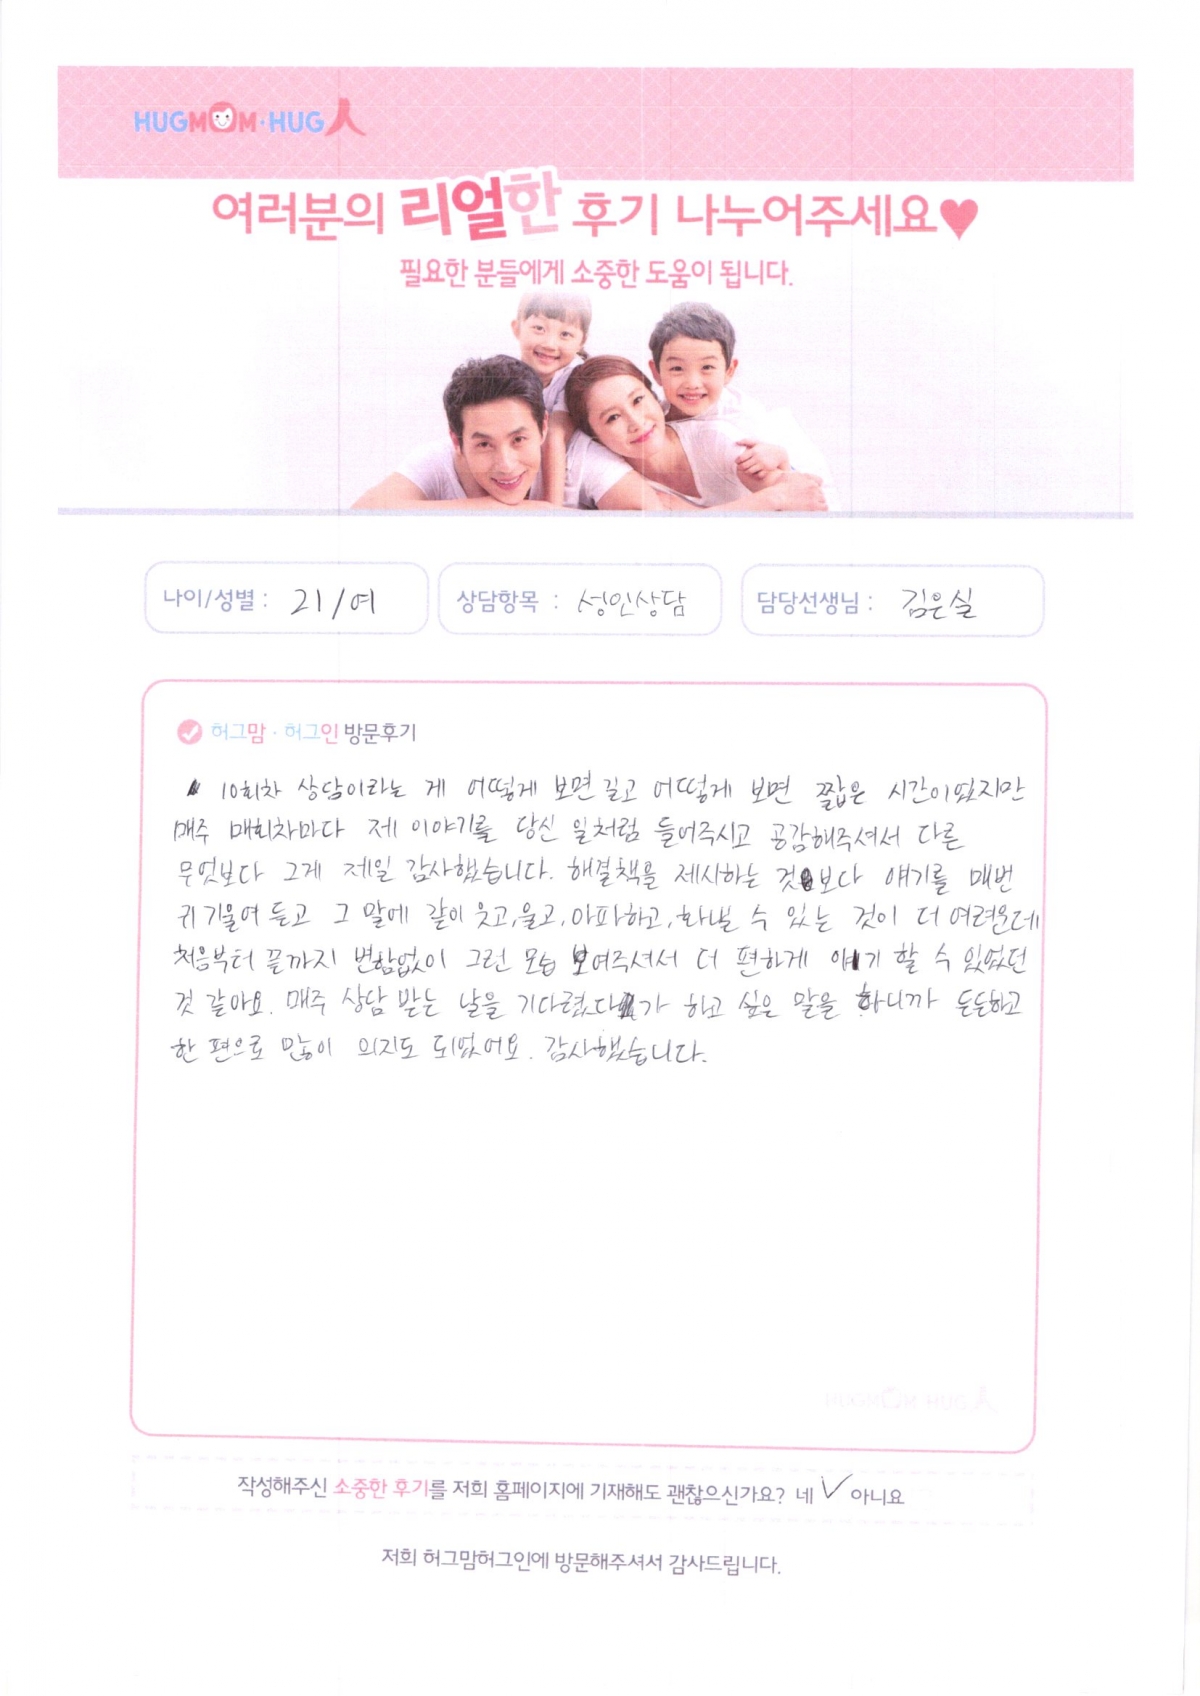 HUGMOM·HUG人
여러분의 리얼한 후기 나누어주세요♥
필요한 분들에게 소중한 도움이 됩니다.
나이/성별 : 21/여
상담항목 : 성인상담
담당선생님 : 김은실
허그맘 · 허그인 방문후기
10회차 상담이라는 게 어떻게 보면 길고 어떻게 보면 짧은 시간이었지만
매주 매회차마다 제 이야기를 당신 일처럼 들어주시고 공감해주셔서 다른
무엇보다 그게 제일 감사했습니다. 해결책을 제시하는 것보다 얘기를 매번
귀 기울여 듣고 그 말에 같이 웃고, 울고, 아파하고, 화낼 수 있는 것이 더 어려운데
처음부터 끝까지 변함없이 그런 모습 보여주셔서 더 편하게 얘기 할 수 있었던
것 같아요. 매주 상담 받는 날을 기다렸다가 하고 싶은 말을 하니까 든든하고
한 편으로 많이 의지도 되었어요. 감사했습니다.
작성해주신 소중한 후기를 저희 홈페이지에 기재해도 괜찮으신가요? 네 ✓ 아니요
저희 허그맘허그인에 방문해주셔서 감사드립니다.